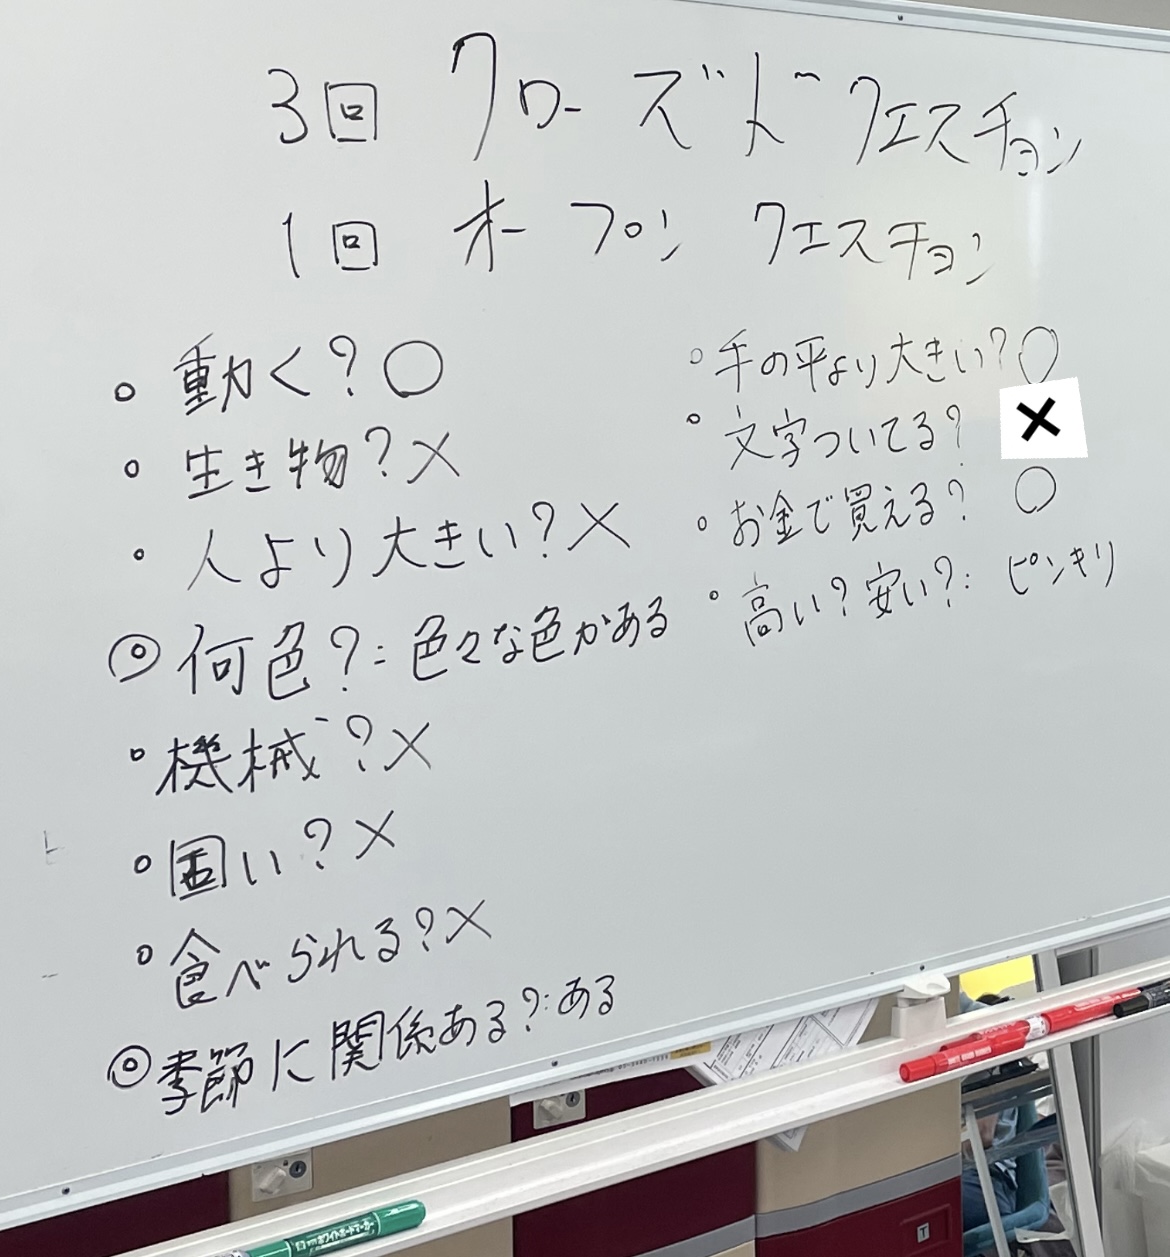 3回 クローズド クエスチョン
1回 オープン クエスチョン
。動く?○
。生き物?×
。人より大きい?×
◎何色?:色々な色がある
。機械?×
。固い?×
。食べられる?×
◎季節に関係ある?:ある
。手の平より大きい?○
。文字ついてる?×
。お金で買える?○
。高い?安い?:ピンキリ
ホワイトボードマーカー
T